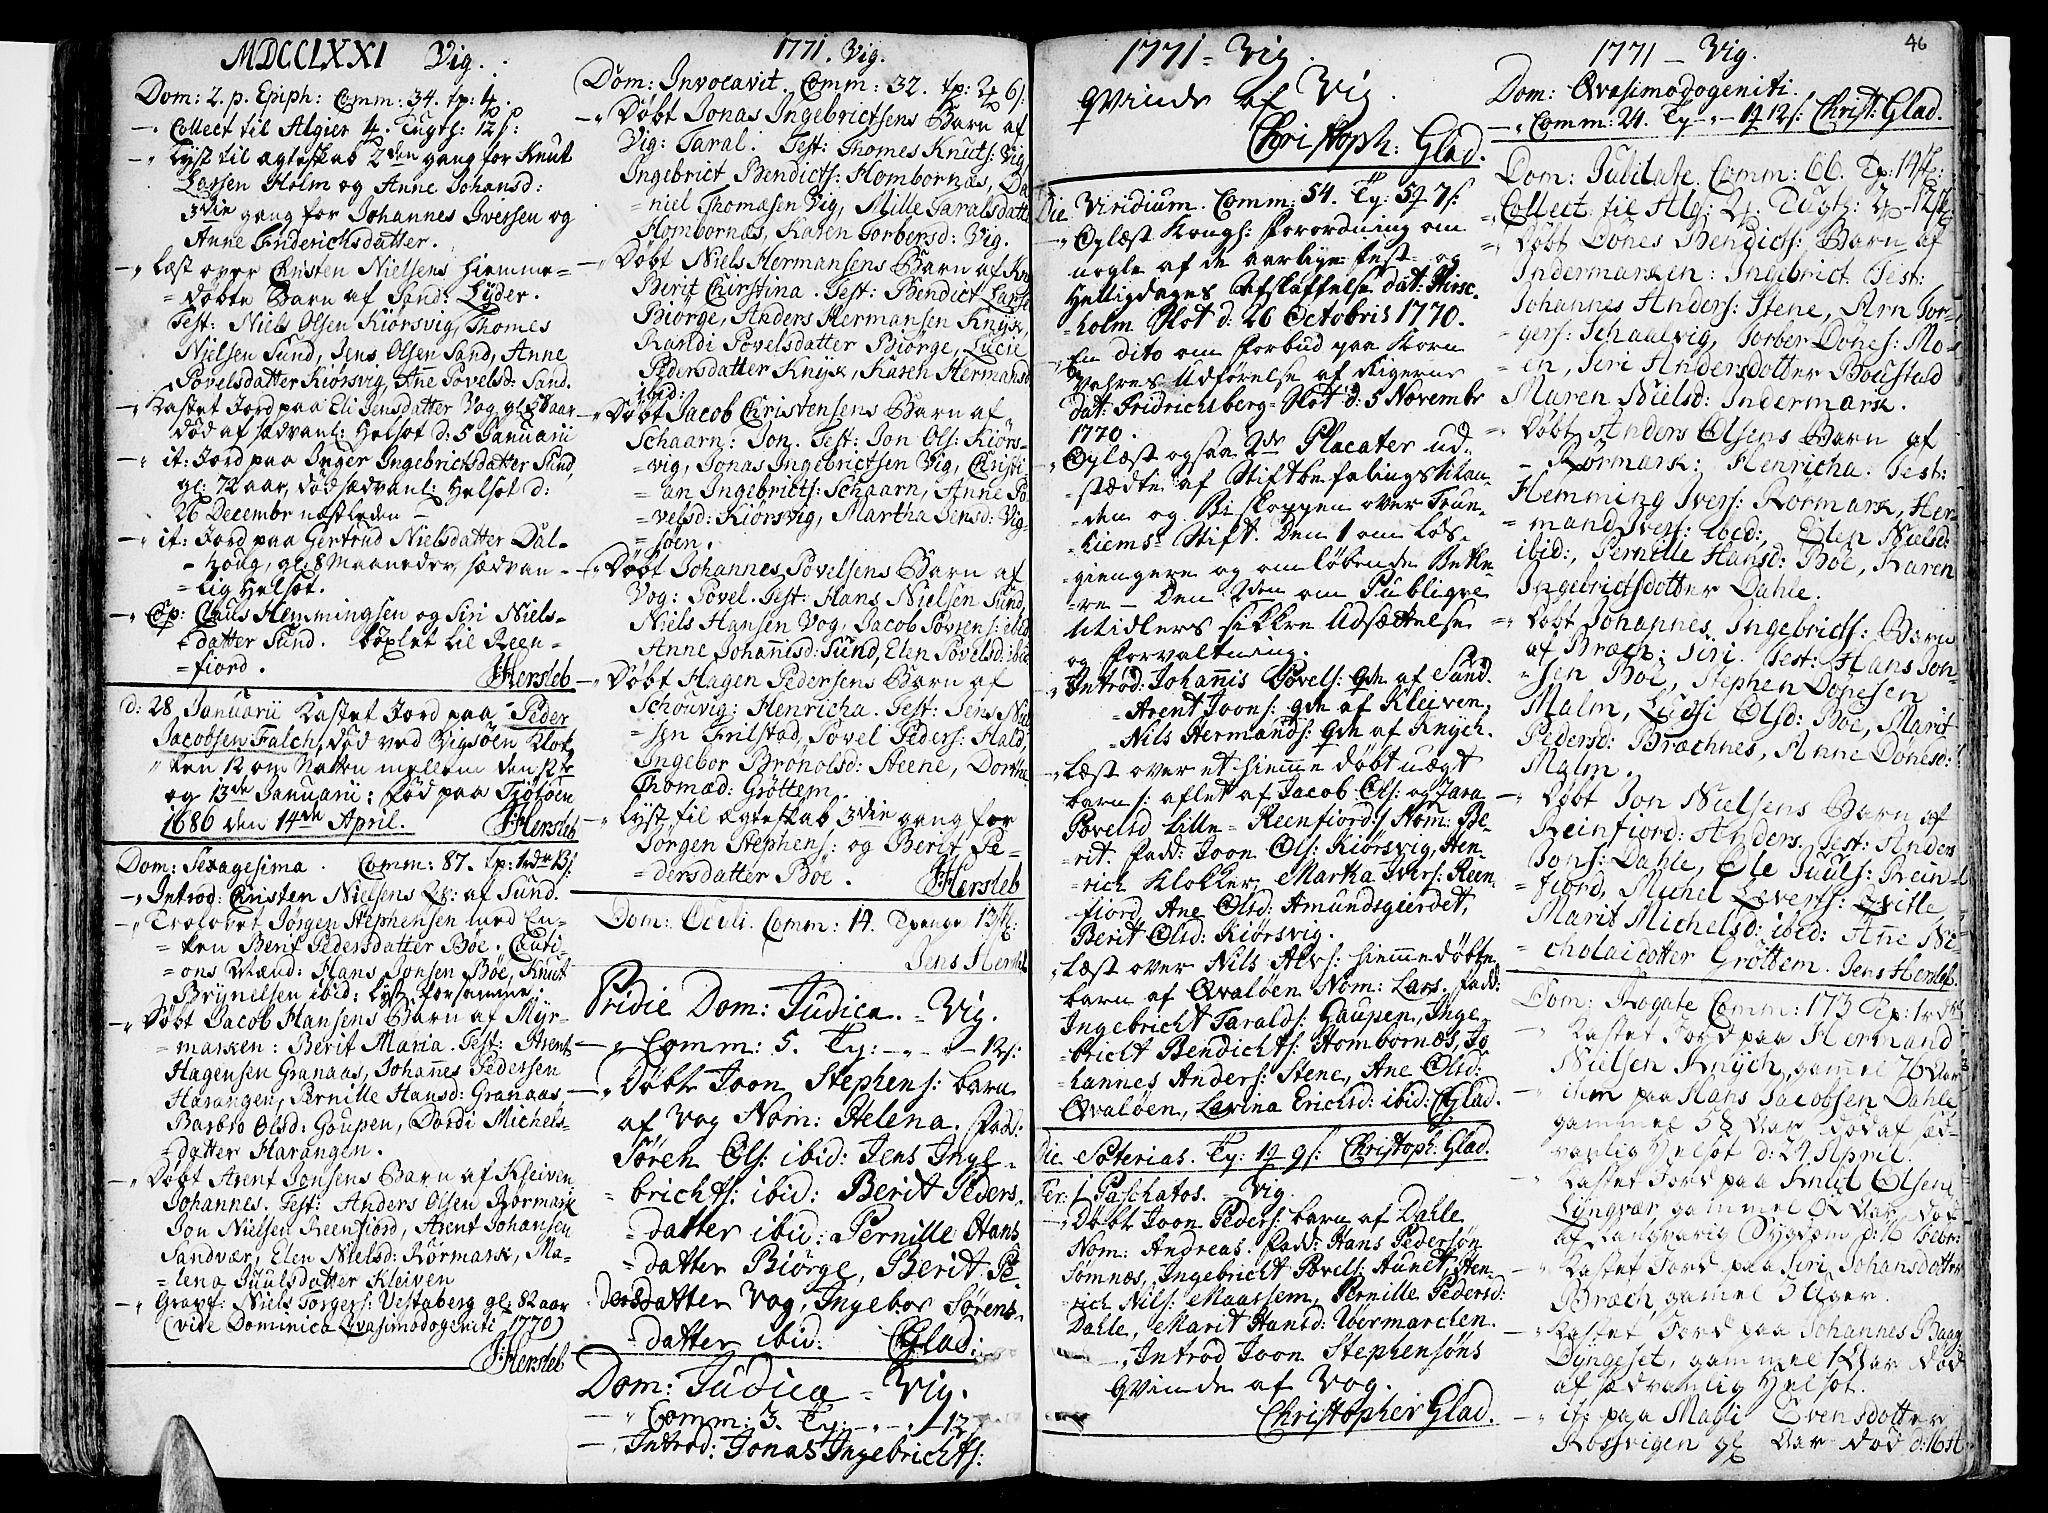 MDCCLXXI Vig.
Dom: 2. p. Epiph: Comm: 34. tp: 4.
Collect til Algier 4. Tugth: 12 s:
Lyst til ægteskab 2den gang for Knut
Larsen Holm og Anne Johansd:
3die gang for Johannes Iversen og
Anne Friderichsdatter.
Læst over Christen Nielsens hiemme=
=døbte Barn af Sund: Lÿder.
Test: Niels Olsen Kiørsvig, Thomes
Nielsen Sund, Jens Olsen Sand, Anne
Povelsdatter Kiørsvig, Añe Povelsd: Sand.
Kastet Jord paa Eli Jensdatter Vog, gl: 58 aar
død af sædvanl: Helsot d: 5 Januarii
it: Jord paa Inger Ingebrictsdatter Sund,
gl: 72 aar, død sædvanl: Helsot d:
26 Decembr næstleden
it: Jord paa Gertrud Nielsdatter Dal=
=houg, gl: 8 Maaneder, sædvan=
=lig Helsot.
Cop: Claus Hemmingsen og Siri Niels=
=datter Sund. Coplet til Reen=
=fiord.
JHersleb
d: 28 Januarii Kastet Jord paa Peder
Jacobsen Falch, død ved Vigsöen Klok=
ken 12 om Natten mellem den 12te
og 13de Januarii: fød paa Tiøtöen
1686 den 14de April.
JHersleb
Dom: Sexagesima. Comm: 87. tp: 1rdr 13 s
Introd: Christen Nielsens Qv: af Sund.
Trolovet Jørgen Stephensen med En=
=ken Berit Pedersdatter Böe. Cauti=
=ons Mænd: Hans Jonsen Böe, Knut
Brynelsen ibid: Lyst forsamme.
Døbt Jacob Hansens Barn af Myr=
=marken: Berit Maria. Test: Arent
Hagensen Granaas, Johañes Pedersen
Harangen, Pernille Hansd: Granaas,
Barbro Olsd: Gaupen, Dordi Michels=
=datter Harangen.
Døbt Arent Jonsens Barn af Kleiven
Johannes. Test: Anders Olsen Rörmark
Jon Nielsen Reenfiord, Arent Johansen
Sandvær, Elen Nielsd: Rörmark, Ma=
=lena Juulsdatter Kleiven
Gravf: Niels Torgers: Vestaberg gl: 82 aar
(vide Dominica Qvasimodogeniti 1770)
JHersleb
1771. Vig.
Dom: Invocavit. Comm: 32. tp: 2 6 s:
Døbt Jonas Ingebrictsens Barn af
Vig: Taral. Test: Thomes Knuts: Vig
Ingebrict Bendicts: Hombornæs, Da
=niel Thomasen Vig, Mille Taralsdatter
Hombornæs, Karen Torbersd: Vig.
Døbt Niels Hermansens Barn af
Berit Christina. Test: Bendict Larse
Biörge, Anders Hermansen Knyk,
Randi Povelsdatter Biörge, Lucie
Pedersdatter Knyk, Karen Hermansd
ibid:
Døbt Jacob Christensens Barn af
Schaarn: Jon. Test: Jon Ols: Kiörs=
=vig, Jonas Ingebrictsen Vig, Christi=
=an Ingebricts: Schaarn, Anne Po
=velsd: Kiörsvig, Martha Jensd: Vig=
=söen.
Døbt Johannes Povelsens Barn af
Vog: Povel. Test: Hans Nielsen Sund,
Niels Hansen Vog, Jacob Sövrens: ibid
Anne Johañisd: Sund, Elen Povelsd: ibid
Døbt Hagen Pedersens Barn af
Schouvig: Henricha. Test: Jens Niel
=sen Frilstad, Povel Peders: Hald,
Ingebor Brönolsd: Steene, Dorthe
Thomæd: Gröttem.
Lyst til Ægteskab 3die gang for
Jörgen Stephens: og Berit Pe=
=dersdatter Böe.
JHersleb
Dom: Oculi. Comm: 14. Tpenge 13 s:
Jens Hersleb
Pridie Dom: Judica. = Vig.
Comm: 5. Ty: - 12 s:
Døbt Joon Stephens: barn
af Vog Nom: Helena. Fadd:
Sören Ols: ibid: Jens Inge=
=brichts: ibid: Berit Peders=
=datter ibid: Pernille Hans
=datter Biörge, Berit Pe=
dersdatter Vog, Ingebor Sörens=
=datter ibid:
CGlad:
Dom: Judica = Vig.
Comm: 3. Ty: - 12
Introd: Jonas Ingebrichts:
1771 = Vig.
qvinde af Vig.
Christoph: Glad.
Die Viridium. Comm: 54. Ty: 5 7 s:
Oplæst Kongs: Forordning om
nogle af de aarlige Fest= og
Helligdages Afskaffelse dat: Hirsc=
=holm Slot d: 26 Octobris 1770.
En dito om Forbud paa Korn
Vahres Udförelse af Rigerne
dat: Fridrichsberg=Slot d: 5 Novembr
1770.
Oplæst ogsaa 2de Placater ud=
=stædte af StiftbefalingsMan=
=den og Biskoppen over Trun=
=hiems=Stift. Den 1 om Lös=
=giengere og omlöbende Betle=
=re – Den 2den om Publiqve
Midlers sikkre Udsættelse
og Forvaltning.
Introd: Johañis Povels: qde af Sund.
=Arent Joons: qde af Kleiven.
=Nils Hermands: Qde af Knych.
Læst over et hieme döbt uægt
barn s: aflet af Jacob Ols: og Sara
Povelsd Lille=Reenfiord / Nom: Be=
rit. Fadd: Joon Ols: Kiörsvig, Hen=
=rich Klokker, Martha Ivers: Reen=
fiord, Ane Olsd: Amundsgierdet,
Berit Olsd: Kiörsvig.
Læst over Nils Alvs: hiemedöbte
barn af Qvalöen Nom: Lars. Fadd:
Ingebricht Taralds: Gaupen, Inge=
=bricht Bendichts: Hombornæs, Jo
=hannes Anders: Stene, Ane Olsd:
Qvalöen, Lavina Erichsd: ibid: CGlad.
Die Soterias. Ty: 1 9 s: Christoph: Glad.
Fer: 1 Paschatos. – Vig.
Döbt Joon Peders: barn af Dahle
Nom: Andreas. Fadd: Hans Pedersön
Sömnæs, Ingebricht Povels: Aunet, Hen=
=rich Nils: Maassem, Pernille Pedersd:
Dahle, Marit Hansd: Übermarchen.
Introd Joon Stephensöns
qvinde af Vog.
Christopher Glad.
1771 – Vig.
46
Dom: Qvasimodogeniti.
Comm: 24. Ty – 1 12 s: Christ: Glad.
Dom: Jubilate. Comm: 66. Tp: 14 s:
Collect til Alg: 2. Tugth: 2 12 s
Døbt Dönes Bendicts: Barn af
Indermarken: Ingebrict. Test:
Johannes Anders: Stene, Arn Tor=
gers: Schaalvig, Torber Dönes: Mo=
=en, Siri Andersdotter Boustad
Maren Nielsd: Indermark.
Døbt Anders Olsens Barn af
Rörmark: Henricha. Test:
Hemming Ivers: Rörmark, Her=
=mand Ivers: ibid:, Elen Nielsd:
ibid:, Pernille Hansd: Böe, Karen
Ingebrictsdotter Dahle.
Døbt Johannes Ingebricts: Barn
af Bræch: Siri. Test: Hans Jon=
=sen Böe, Stephen Dönesen
Malm, Ludsi Olsd: Böe, Marit
Pedersd: Bræchnes, Anne Dönesd:
Malm.
Døbt Jon Nielsens Barn af
Reinfiord: Anders. Test: Anders
Jons: Dahle, Ole Juuls: Rein=
=fiord, Michel Leverts: Qville,
Marit Michelsd: ibid: Añe Ni=
=cholaidotter Gröttem. Jens Hersleb.
Dom: Rogate Comm: 173 Tp: 1rdr
Kastet Jord paa Hermand
Nielsen Knÿch, gamel 76 Aar
item paa Hans Jacobsen Dahle,
gammel 58 Aar, död af sæd=
=vanlig Helsot d: 29 April.
Kastet Jord paa Emil Olsen
Lÿngvær gammel 62 Aar död
af Langvarig Sygdom d: 16 Febr:
Kastet Jord paa Siri Johansdotter
Bræch, gamel 3 Uger.
Kastet Jord paa Johannes Bagg
Dÿngeset, gammel 1 Aar död
af sædvanlig Helsot.
it: paa Magli Evensdotter
Rossvigen gl Aar död d: 16